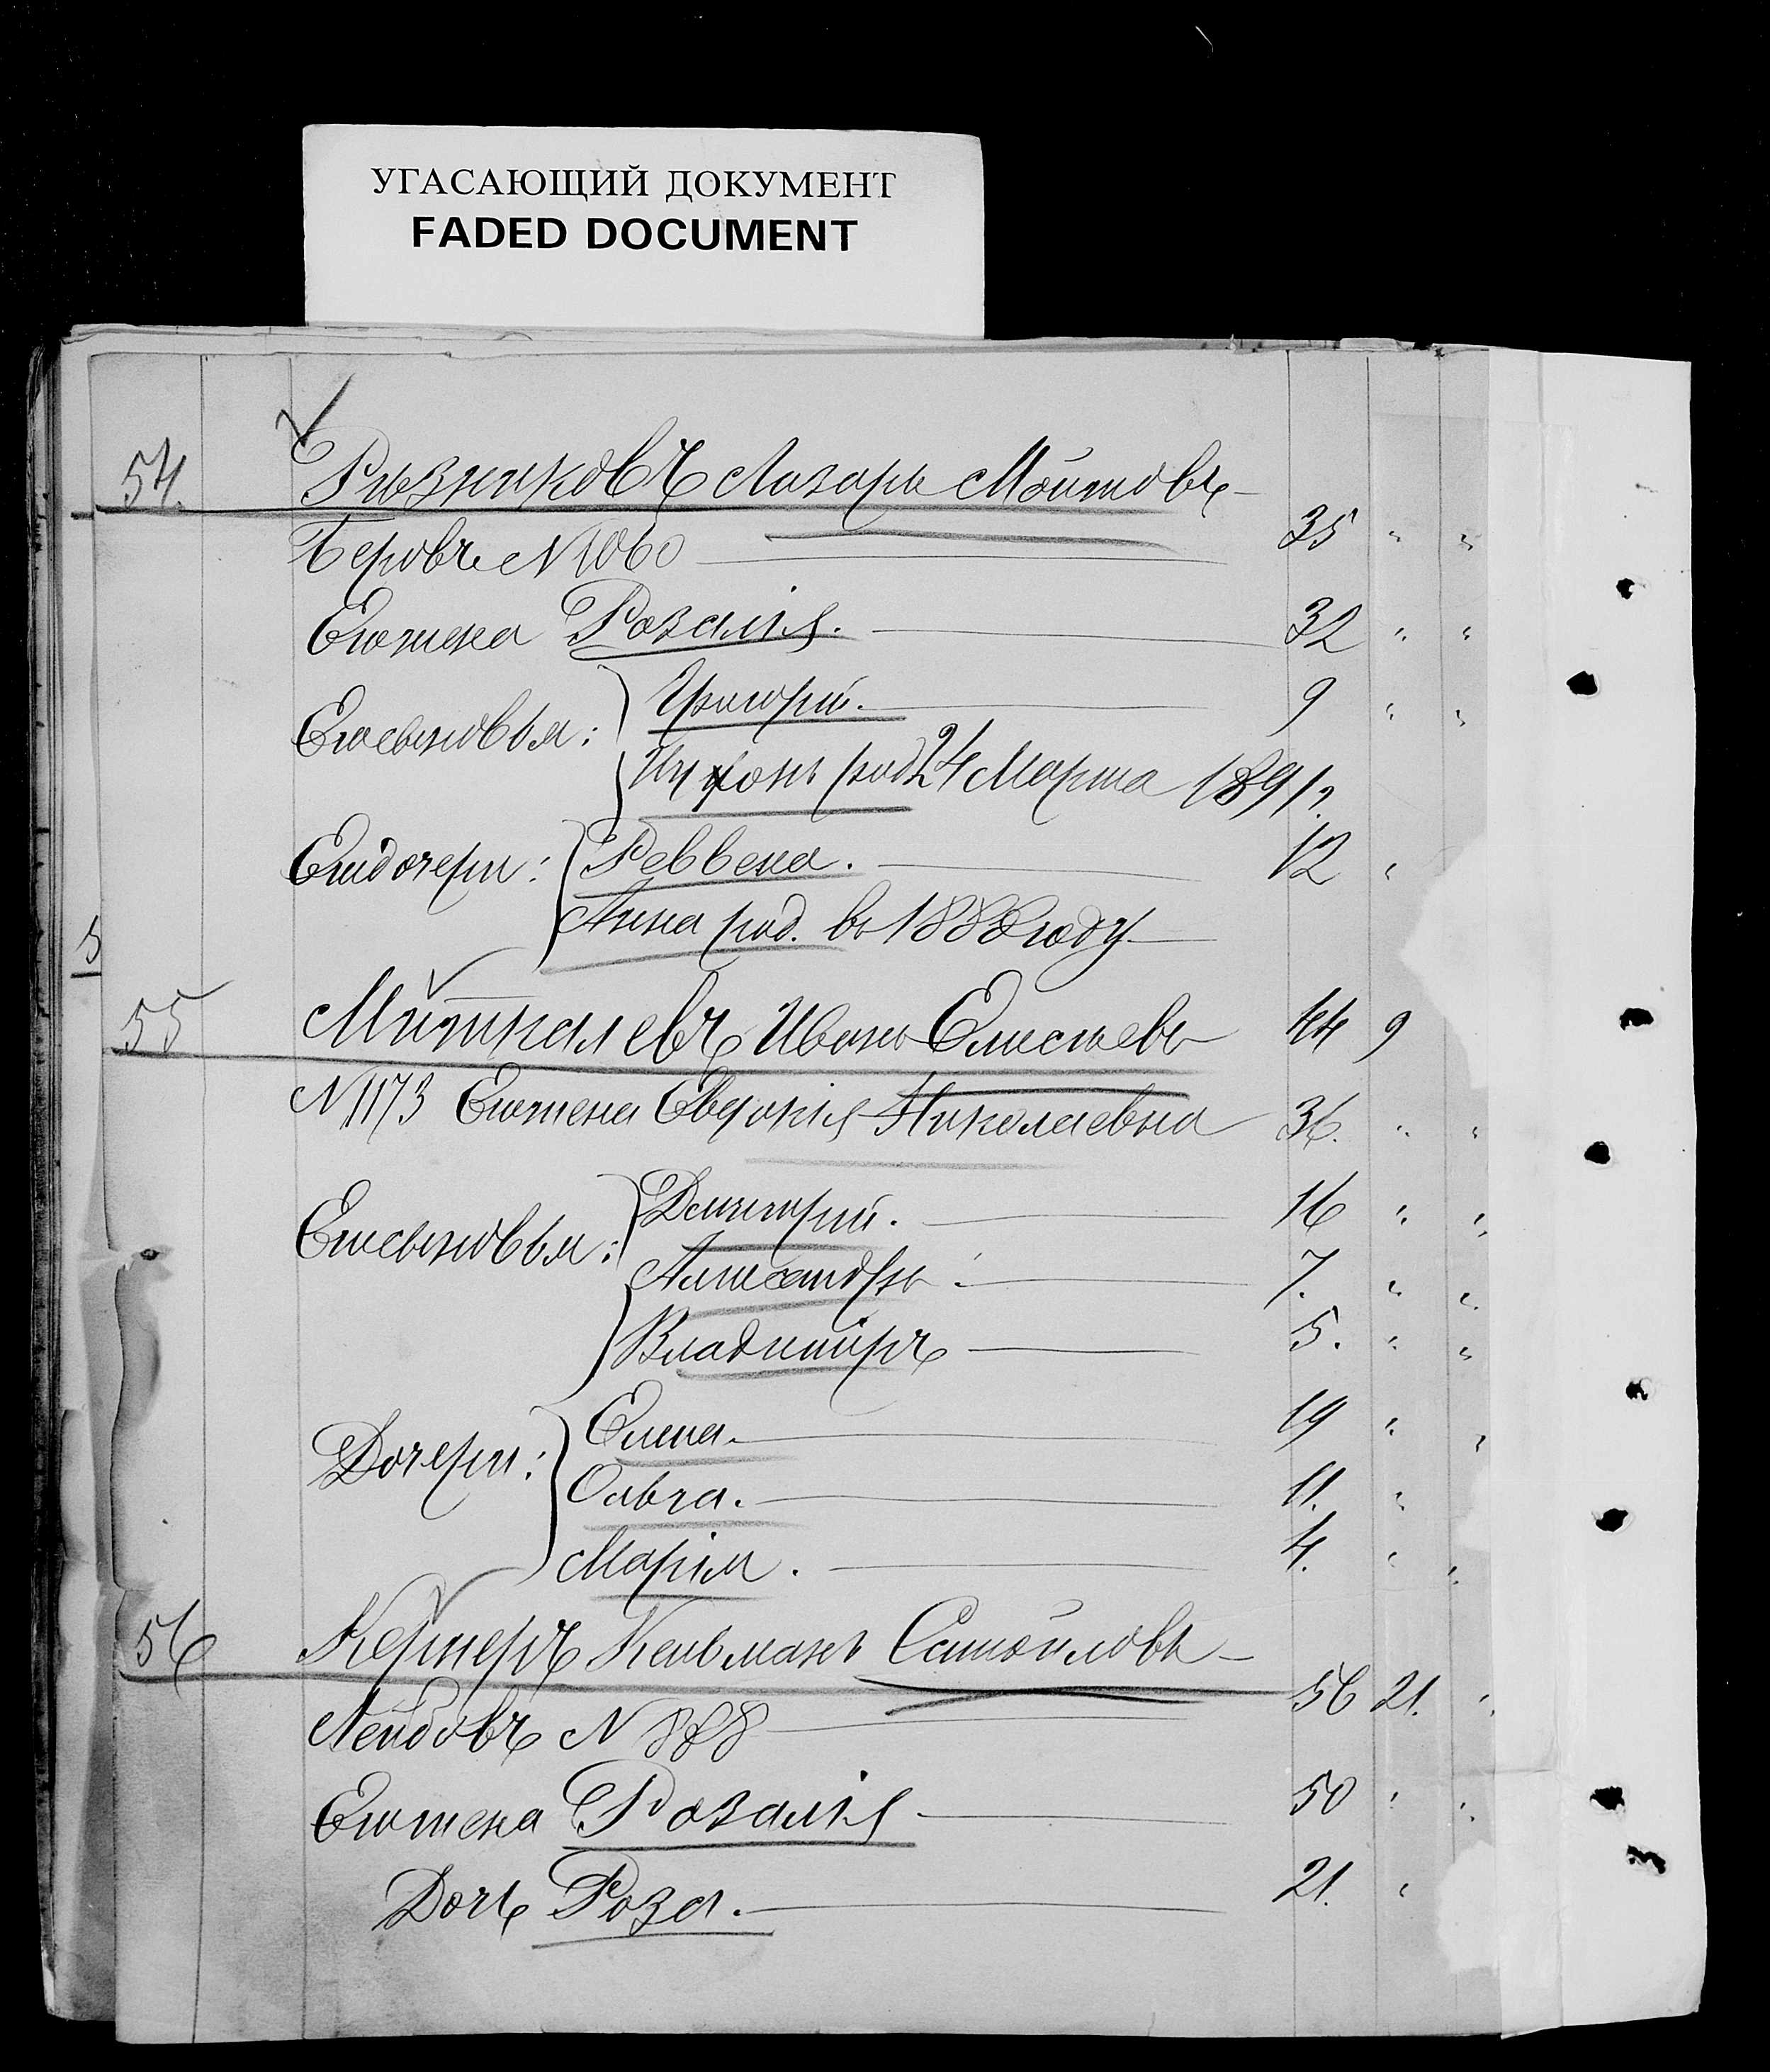 УГАСАЮЩИЙ ДОКУМЕНТ
FADED DOCUMENT
54. Рѣзниковъ Лазарь
Беровъ № 1060 35 " "
Его жена Розалія. 32 " "
Его сыновья: Григорій. 9 " "
род 24 Марта 1891 г.
Его дочери: Реввека. 12 "
Анна род. въ 1888 году
5
55 Миткалевъ Иванъ Елисѣевъ 44 9
№ 1173 Его жена Евдокія Николаевна 36. " "
Его сыновья: Дмитрій. 16 " "
Александръ. 7. " "
Владимиръ 5. " "
Дочери: Елена. 19 " "
Ольга. 11. "
Марія. 4. " "
56 Кельманъ Самойловъ
Лейбовъ № 888 56 21. "
Его жена Розалія 50 " "
Дочь Роза. 21. "